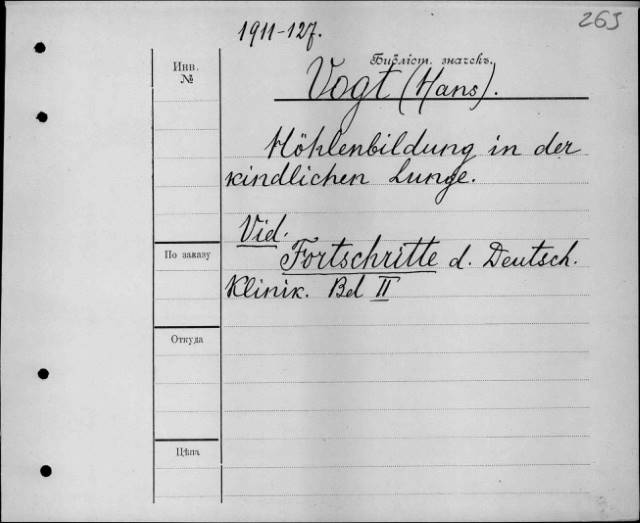 1911-127.
263
Инв.
№
Библіот. значекъ.
Vogt (Hans).
Höhlenbildung in der
kindlichen Lunge.
Vid.
По заказу
Fortschritte d. Deutsch.
Klinik. Bd II
Откуда
Цѣна